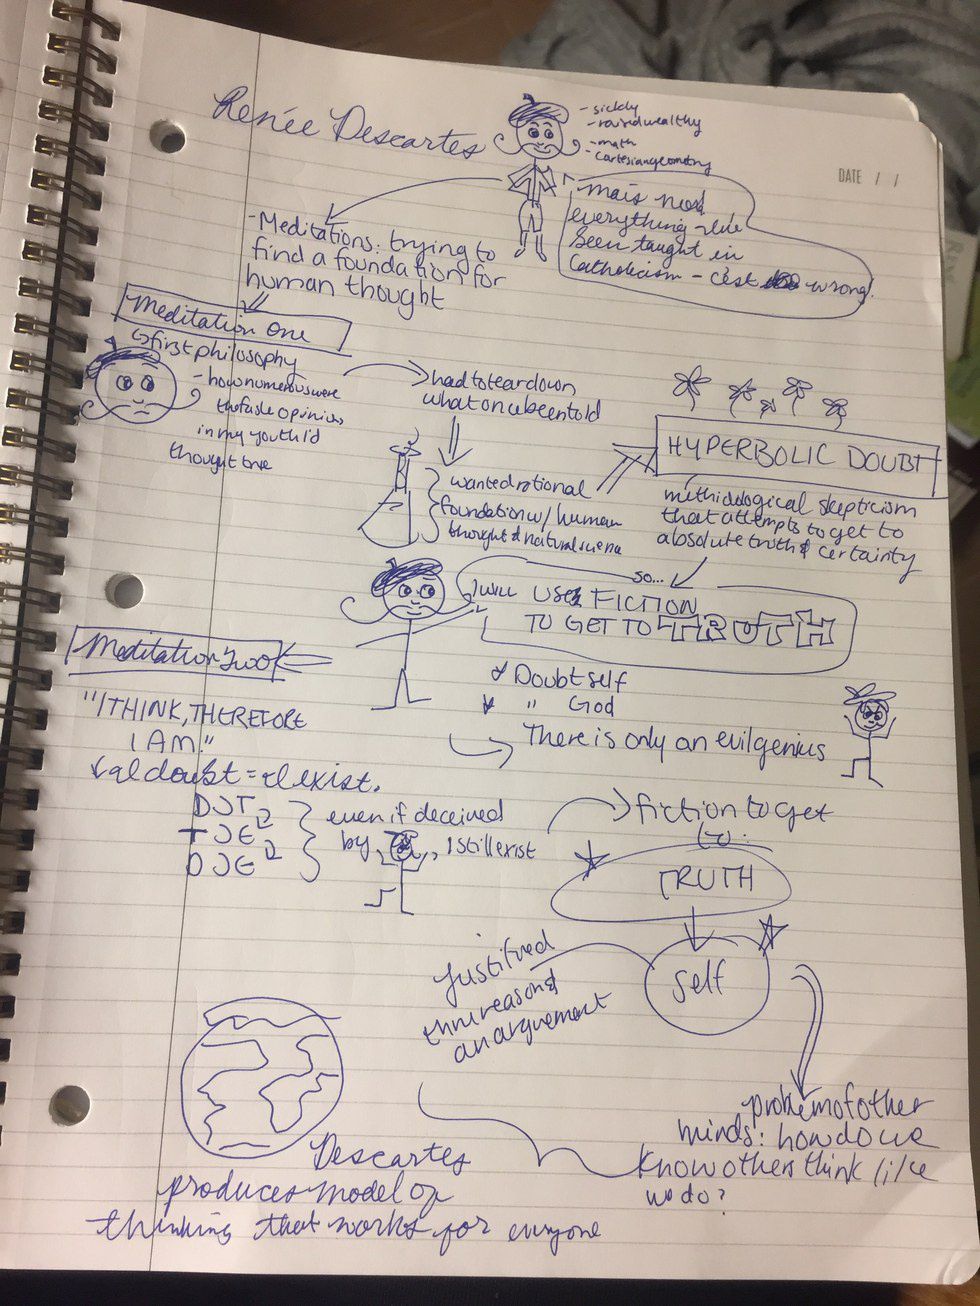 Renée Descartes
- sickly
- raised wealthy
- math
- cartesian geometry
DATE / /
mais non!
everything
been taught in
Catholicism - c'est wrong!
- Meditations: trying to
find a foundation for
human thought
Meditation One
first philosophy
- how numerous were
the false opinions
in my youth I'd
thought true
had to tear down
what once been told
wanted rational
foundation w/ human
thought & natural science
HYPERBOLIC DOUBT
methidological skepticism
that attempts to get to
absolute truth & certainty
so...
I will USE FICTION
TO GET TO TRUTH
Meditation Two
Doubt self
" God
There is only an evil genius
"I THINK, THEREFORE
I AM."
doubt = exist.
even if deceived
by , I still exist
fiction to get
to:
TRUTH
Self
Justified
thru reason &
an arguement
problem of other
minds: how do we
know others think like
we do?
Descartes
produces model of
thinking that works for everyone